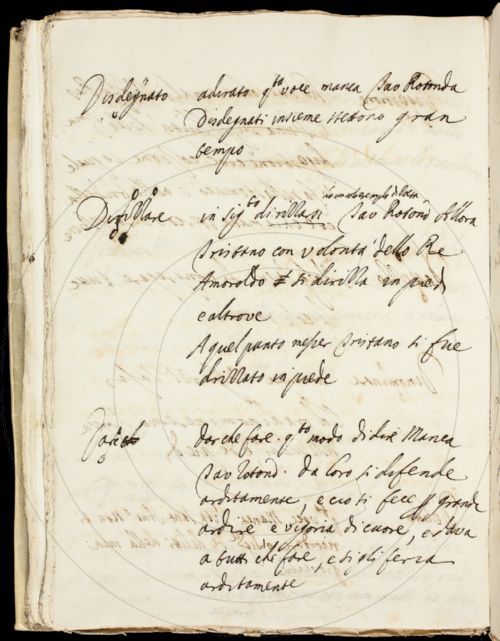 Disdegnato adirato q.to voce manca Tav Rotonda
Disdegnati insieme stetono gran
tempo
Dirillare in sig.to dirillasi Tav Rotond Allora
Tristano con volontà dello Re
Amoroldo si dirilla in piedi
e altrove
A quel punto messer Tristano si fue
dirillato in piede
Dare dar che fare. q.to modo di dire Manca
Tav Rotond. da loro si difende
arditamente, e ciò si fece grande
ardire e vigoria di cuore, e dava
a tutti che fare, e sigli feria
arditamente